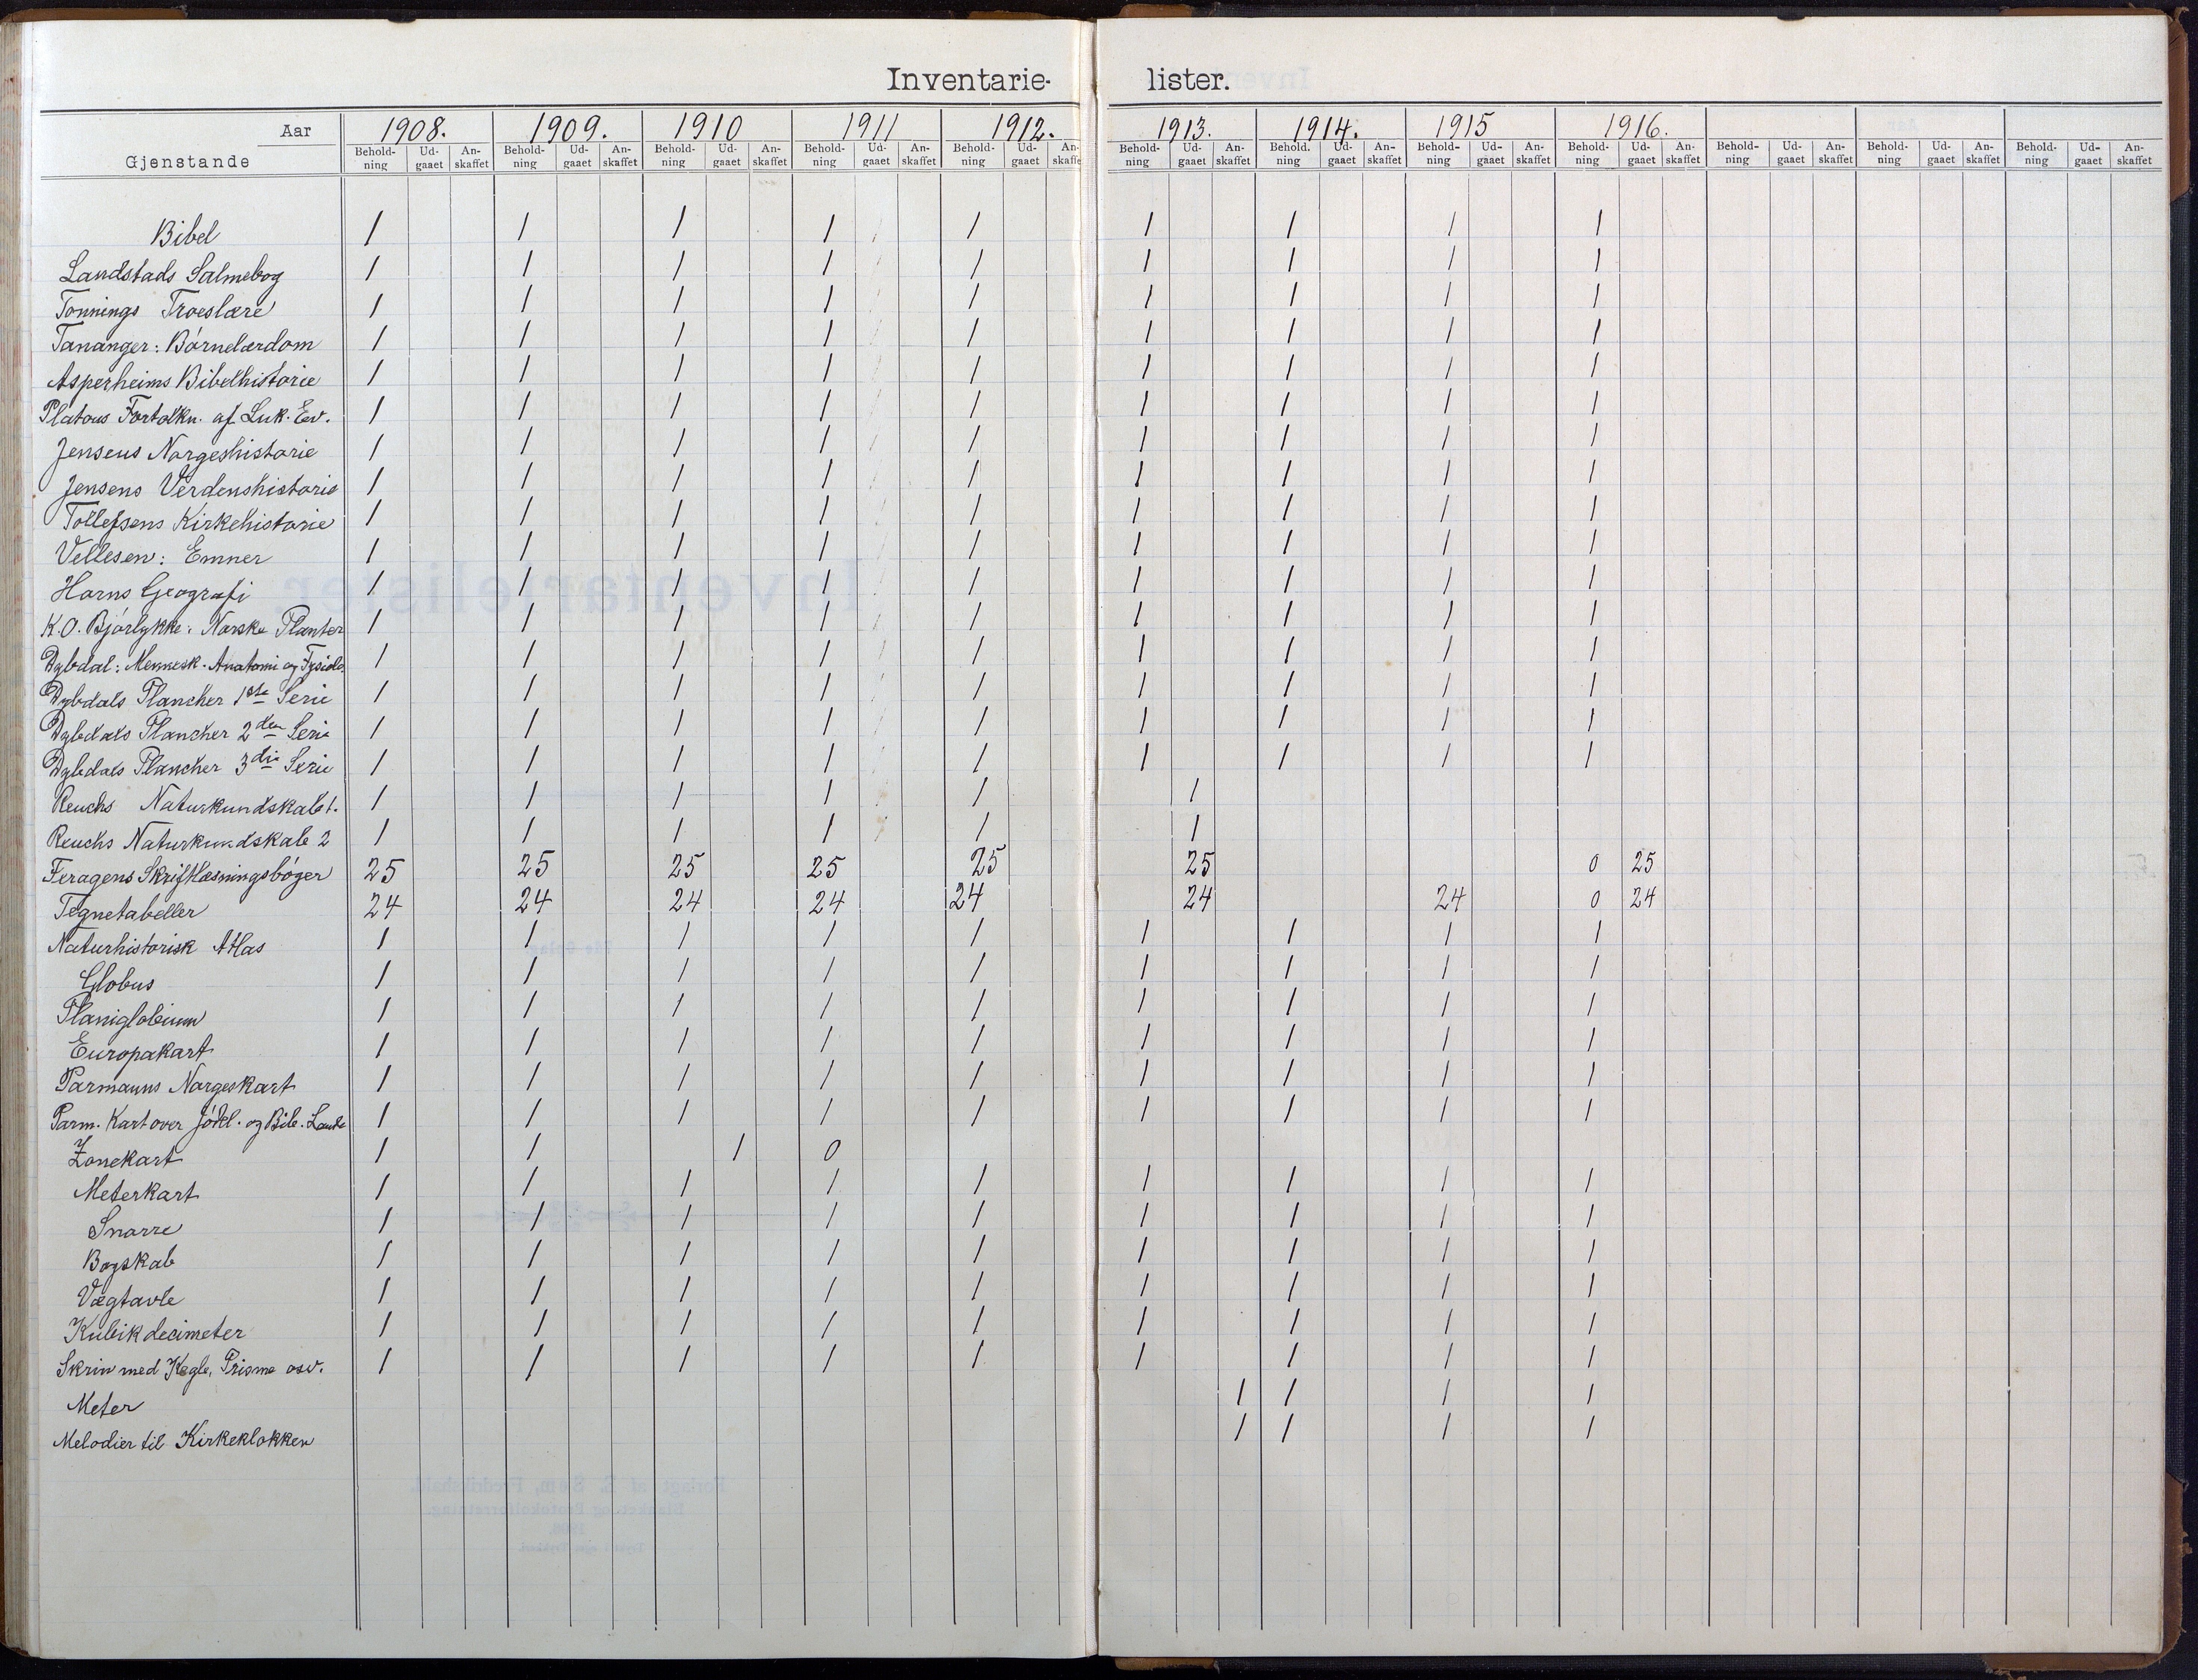 Inventarie- lister.
Aar 1908. 1909. 1910 1911 1912. 1913. 1914. 1915 1916.
Gjenstande Behold-ning Ud-gaaet An-skaffet Behold-ning Ud-gaaet An-skaffet Behold-ning Ud-gaaet An-skaffet Behold-ning Ud-gaaet An-skaffet Behold-ning Ud-gaaet An-skaffe Behold-ning Ud-gaaet An-skaffet Behold.ning Ud-gaaet An-skaffet Behold-ning Ud-gaaet An-skaffet Behold-ning Ud-gaaet An-skaffet Behold-ning Ud-gaaet An-skaffet Behold-ning Ud-gaaet An-skaffet Behold-ning Ud-gaaet An-skaffet
Bibel 1 1 1 1 1 1 1 1 1
Landstads Salmebog 1 1 1 1 1 1 1 1 1
Tonnings Troeslære 1 1 1 1 1 1 1 1 1
Tananger: Børnelærdom 1 1 1 1 1 1 1 1 1
Asperheims Bibelhistorie 1 1 1 1 1 1 1 1 1
Platous Fortolkn. af Luk. Ev. 1 1 1 1 1 1 1 1 1
Jensens Norgeshistorie 1 1 1 1 1 1 1 1 1
Jensens Verdenshistorie 1 1 1 1 1 1 1 1 1
Tollefsens Kirkehistorie 1 1 1 1 1 1 1 1 1
Vellesen: Emner 1 1 1 1 1 1 1 1 1
Horns Geografi 1 1 1 1 1 1 1 1 1
K.O. Bjørlykke: Norske Planter 1 1 1 1 1 1 1 1 1
Dybdal: Mennesk. Anatomi og Fysiolo. 1 1 1 1 1 1 1 1 1
Dybdals Plancher 1ste Serie 1 1 1 1 1 1 1 1 1
Dybdals Plancher 2den Serie 1 1 1 1 1 1 1 1 1
Dybdals Plancher 3die Serie 1 1 1 1 1 1 1 1 1
Reuchs Naturkundskab 1. 1 1 1 1 1 1
Reuchs Naturkundskab 2 1 1 1 1 1 1
Feragens Skriftlæsningsbøger 25 25 25 25 25 25 0 25
Tegnetabeller 24 24 24 24 24 24 24 0 24
Naturhistorisk Atlas 1 1 1 1 1 1 1 1 1
Globus 1 1 1 1 1 1 1 1 1
Planiglobium 1 1 1 1 1 1 1 1 1
Europakart 1 1 1 1 1 1 1 1 1
Parmanns Norgeskart 1 1 1 1 1 1 1 1 1
Parm. Kart over Jødel. og Bib. Lande 1 1 1 1 1 1 1 1 1
Zonekart 1 1 1 0
Meterkart 1 1 1 1 1 1 1 1 1
Snorre 1 1 1 1 1 1 1 1 1
Bogskab 1 1 1 1 1 1 1 1 1
Vægtavle 1 1 1 1 1 1 1 1 1
Kubikdecimeter 1 1 1 1 1 1 1 1 1
Skrin med Kegle, Prisme osv. 1 1 1 1 1 1 1 1 1
Meter 1 1 1 1
Melodier til Kirkeklokken 1 1 1 1